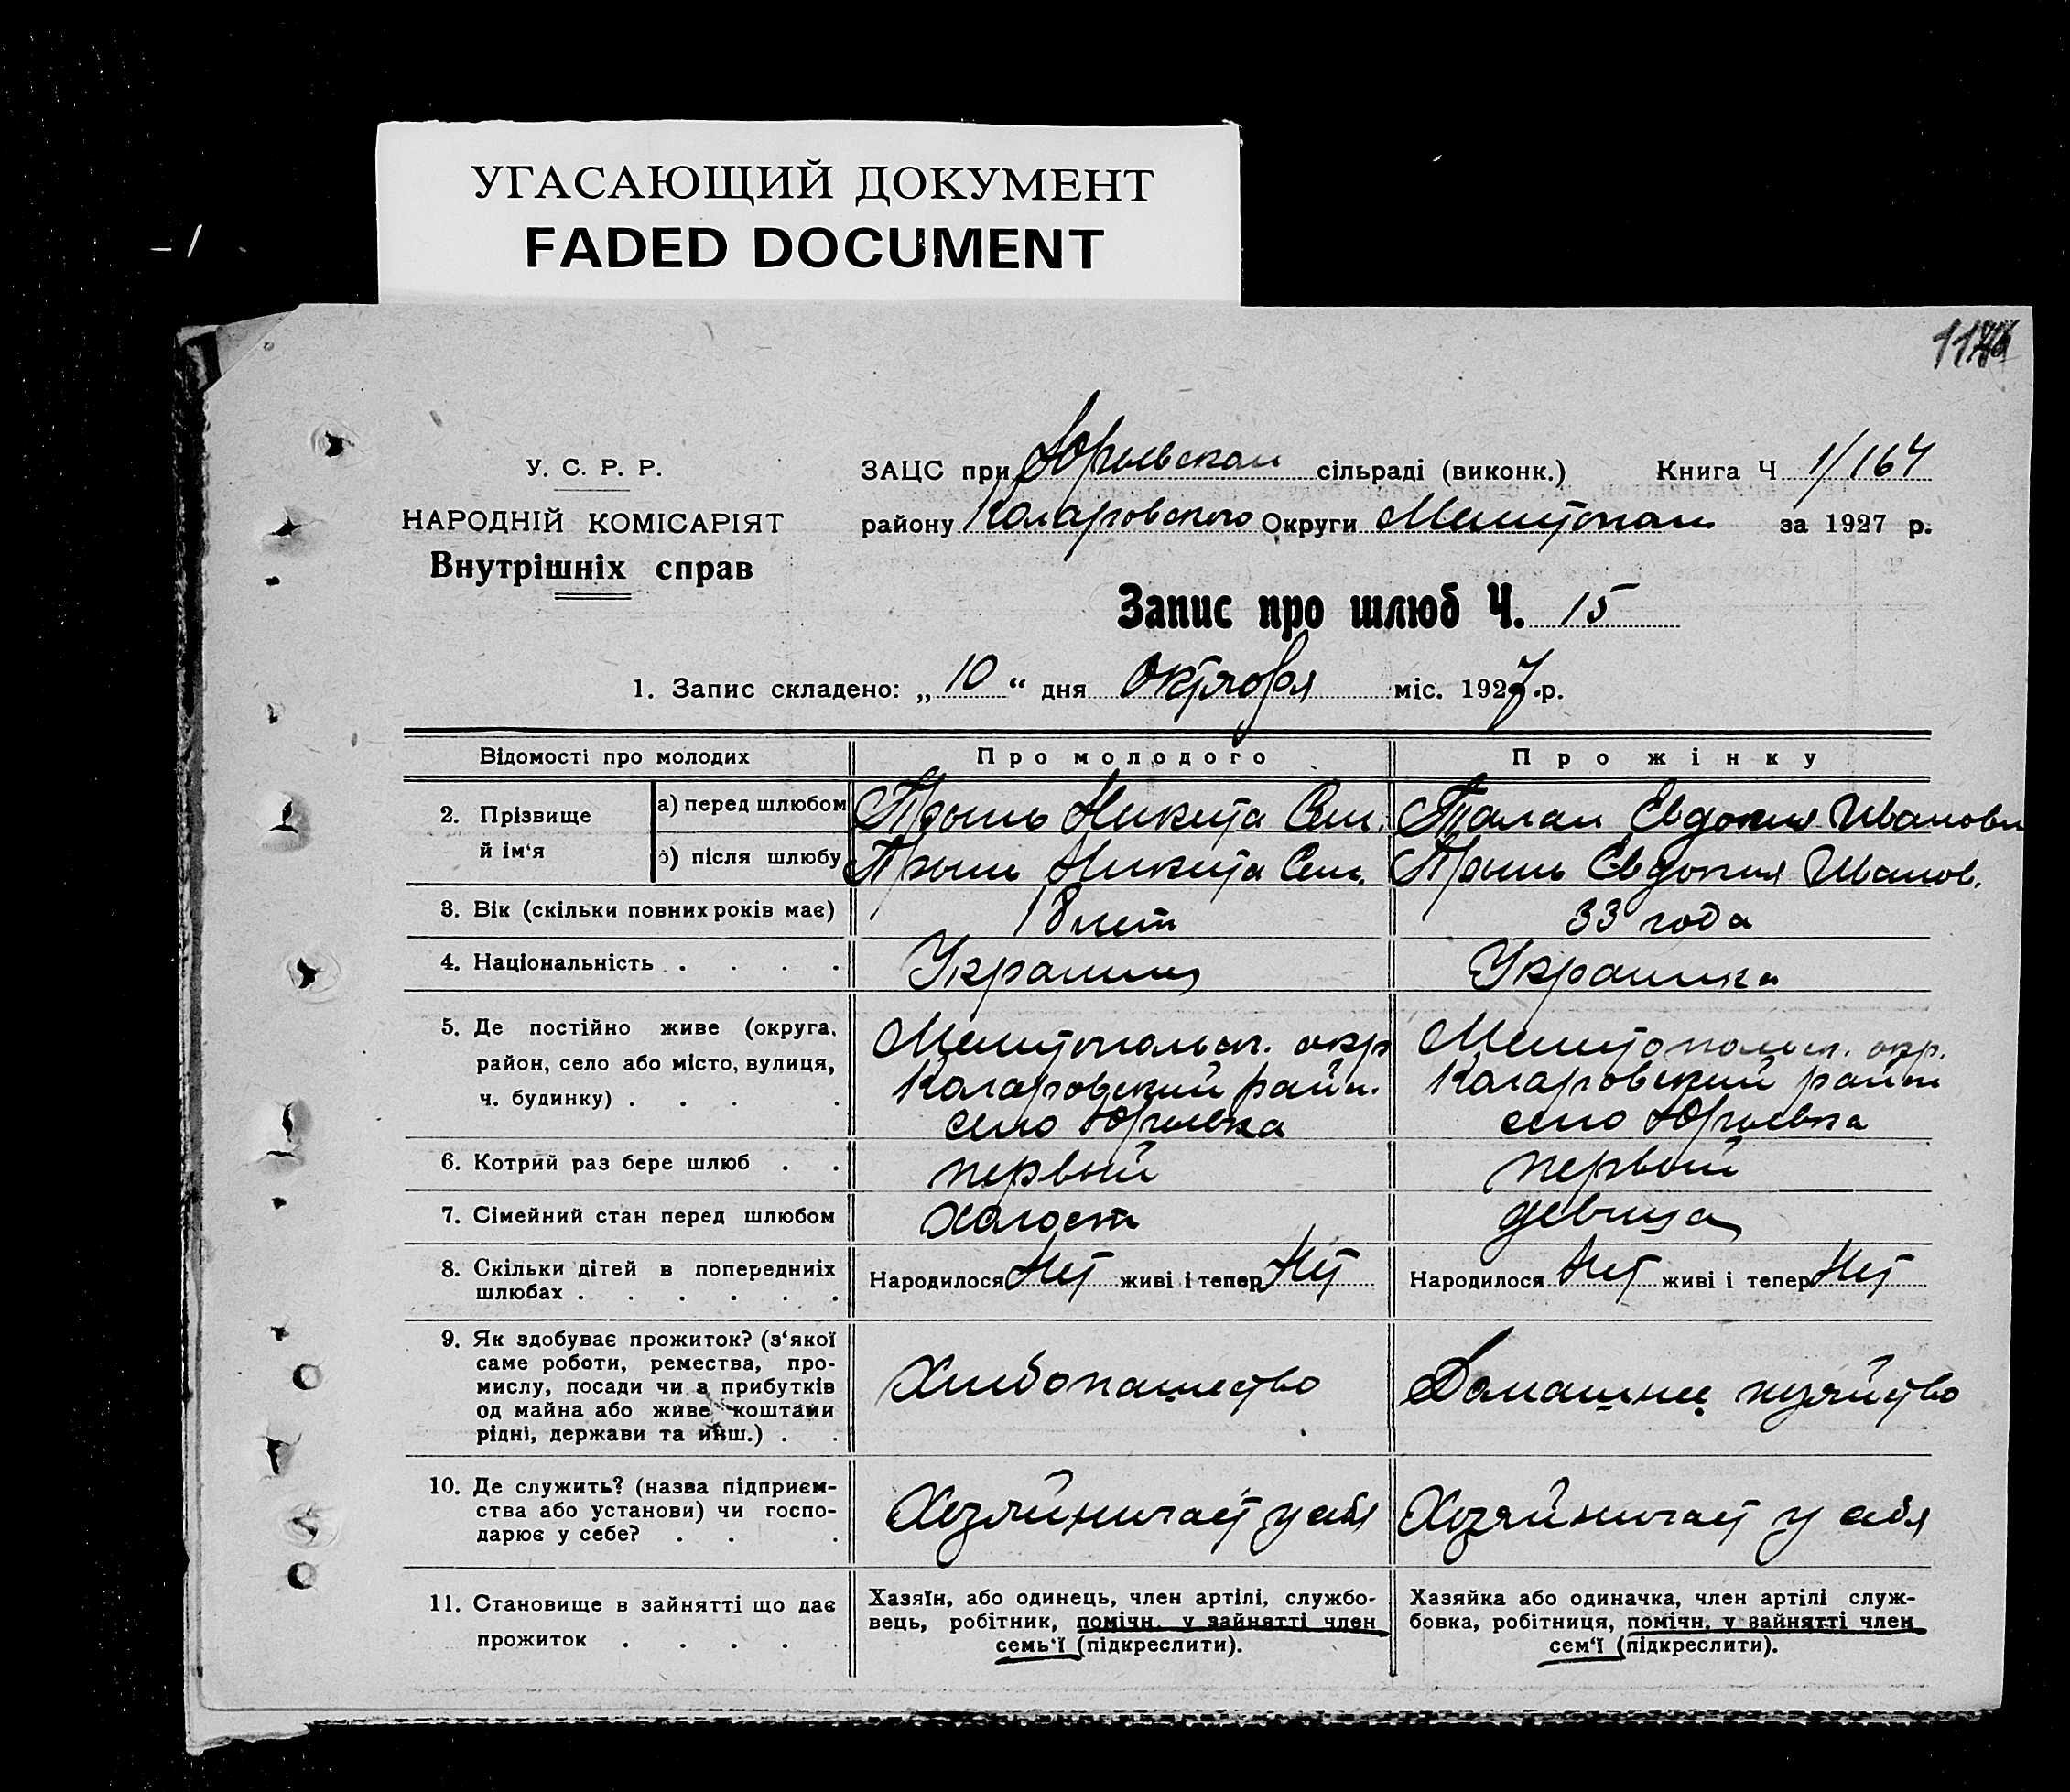 УГАСАЮЩИЙ ДОКУМЕНТ
FADED DOCUMENT
У. С. Р. Р.
НАРОДНІЙ КОМІСАРІЯТ
Внутрішніх справ
ЗАЦС при Юрьевском сільраді (виконк.) Книга Ч 1/164
району Коларовского Округи Мелитопол за 1927 р.
Запис про шлюб Ч. 15
1. Запис складено: „ 10 “ дня Октября міс. 1927 р.
Відомості про молодих Про молодого Про жінку
2. Прізвище й ім‘я
а) перед шлюбом Никита Сем. Талан Евдокия Ивановн
б) після шлюбу Никита Сем. Евдокия Иванов.
3. Вік (скільки повних років має) 18 лет 33 года
4. Національність . . . . Украинец Украинка
5. Де постійно живе (округа, район, село або місто, вулиця, ч. будинку) . . . .
Мелитопольск. окр
Коларовский район.
село Юрьевка
Мелитопольск. окр.
Коларовский район
село Юрьевка
6. Котрий раз бере шлюб . . первый первый
7. Сімейний стан перед шлюбом холост девица
8. Скільки дітей в попередніх шлюбах . . . . . .
Народилося Нет живі і тепер Нет
Народилося Нет живі і тепер Нет
9. Як здобуває прожиток? (з‘якої
саме роботи, ремества, про-
мислу, посади чи з прибутків
од майна або живе коштами
рідні, держави та инш.) . .
Хлебопашество
Домашнее хозяйство
10. Де служить? (назва підприєм-
ства або установи) чи госпо-
дарює у себе? . . .
Хозяйничает у себя
Хозяйничает у себя
11. Становище в зайнятті що дає
прожиток . . . .
Хазяїн, або одинець, член артілі, службо-
вець, робітник, помічн. у зайнятті член
семь‘ї (підкреслити).
Хазяйка або одиначка, член артілі служ-
бовка, робітниця, помічн. у зайнятті член
сем‘ї (підкреслити).